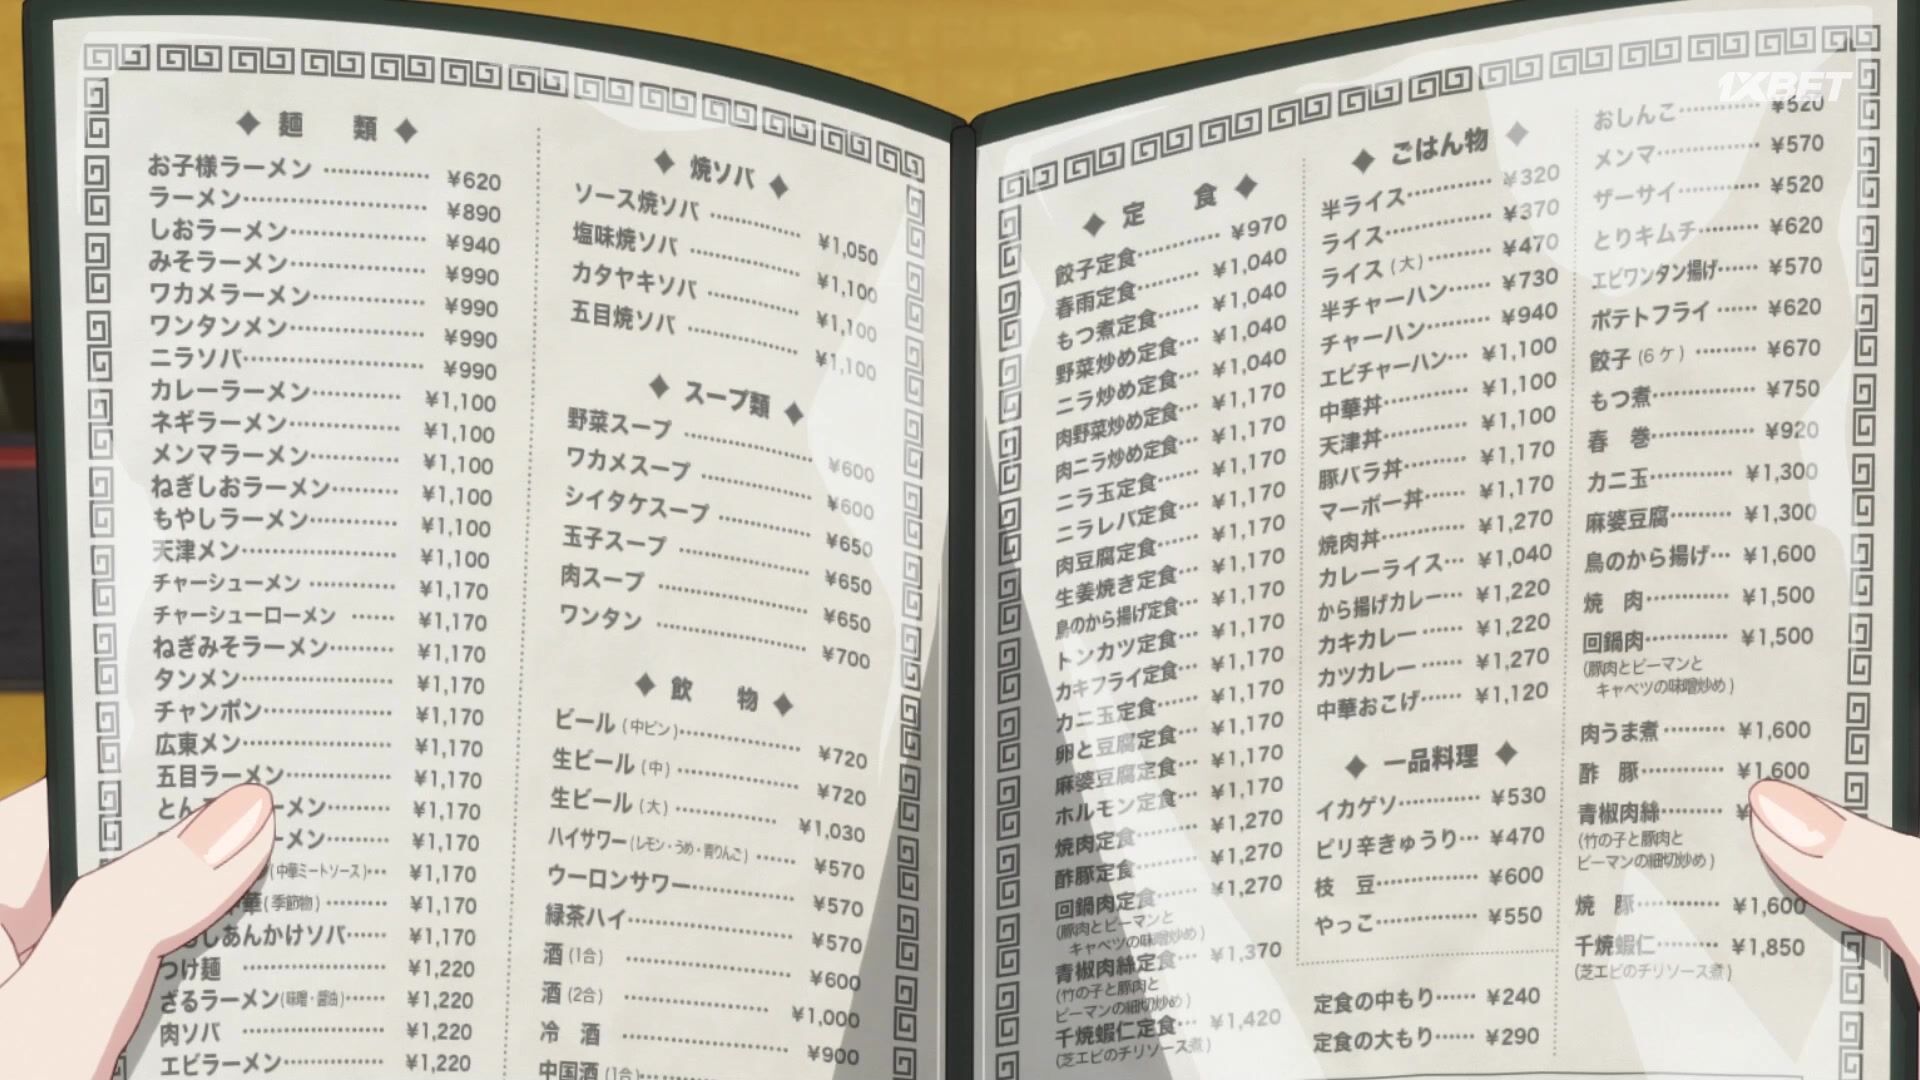 ◆ 麺 類 ◆
お子様ラーメン ¥620
ラーメン ¥890
しおラーメン ¥940
みそラーメン ¥990
ワカメラーメン ¥990
ワンタンメン ¥990
ニラソバ ¥990
カレーラーメン ¥1,100
ネギラーメン ¥1,100
メンマラーメン ¥1,100
ねぎしおラーメン ¥1,100
もやしラーメン ¥1,100
天津メン ¥1,100
チャーシューメン ¥1,170
チャーシューローメン ¥1,170
ねぎみそラーメン ¥1,170
タンメン ¥1,170
チャンポン ¥1,170
広東メン ¥1,170
五目ラーメン ¥1,170
とん ーメン ¥1,170
ーメン ¥1,170
(中華ミートソース) ¥1,170
華(季節物) ¥1,170
しあんかけソバ ¥1,170
つけ麺 ¥1,220
ざるラーメン(味噌・醤油) ¥1,220
肉ソバ ¥1,220
エビラーメン ¥1,220
◆ 焼ソバ ◆
ソース焼ソバ ¥1,050
塩味焼ソバ ¥1,100
カタヤキソバ ¥1,100
五目焼ソバ ¥1,100
◆ スープ類 ◆
野菜スープ ¥600
ワカメスープ ¥600
シイタケスープ ¥650
玉子スープ ¥650
肉スープ ¥650
ワンタン ¥700
◆ 飲 物 ◆
ビール(中ビン) ¥720
生ビール(中) ¥720
生ビール(大) ¥1,030
ハイサワー(レモン・うめ・青りんご) ¥570
ウーロンサワー ¥570
緑茶ハイ ¥570
酒(1合) ¥600
酒(2合) ¥1,000
冷 酒 ¥900
中国酒(1合)
◆ 定 食 ◆
餃子定食 ¥970
春雨定食 ¥1,040
もつ煮定食 ¥1,040
野菜炒め定食 ¥1,040
ニラ炒め定食 ¥1,040
肉野菜炒め定食 ¥1,170
肉ニラ炒め定食 ¥1,170
ニラ玉定食 ¥1,170
ニラレバ定食 ¥1,170
肉豆腐定食 ¥1,170
生姜焼き定食 ¥1,170
鳥のから揚げ定食 ¥1,170
トンカツ定食 ¥1,170
カキフライ定食 ¥1,170
カニ玉定食 ¥1,170
卵と豆腐定食 ¥1,170
麻婆豆腐定食 ¥1,170
ホルモン定食 ¥1,170
焼肉定食 ¥1,270
酢豚定食 ¥1,270
回鍋肉定食 ¥1,270
(豚肉とピーマンと
キャベツの味噌炒め)
青椒肉絲定食 ¥1,370
(竹の子と豚肉と
ピーマンの細切炒め)
千焼蝦仁定食 ¥1,420
(芝エビのチリソース煮)
◆ ごはん物 ◆
半ライス ¥320
ライス ¥370
ライス(大) ¥470
半チャーハン ¥730
チャーハン ¥940
エビチャーハン ¥1,100
中華丼 ¥1,100
天津丼 ¥1,100
豚バラ丼 ¥1,170
マーボー丼 ¥1,170
焼肉丼 ¥1,270
カレーライス ¥1,040
から揚げカレー ¥1,220
カキカレー ¥1,220
カツカレー ¥1,270
中華おこげ ¥1,120
◆ 一品料理 ◆
イカゲソ ¥530
ピリ辛きゅうり ¥470
枝 豆 ¥600
やっこ ¥550
定食の中もり ¥240
定食の大もり ¥290
おしんこ ¥520
メンマ ¥570
ザーサイ ¥520
とりキムチ ¥620
エビワンタン揚げ ¥570
ポテトフライ ¥620
餃子(6ケ) ¥670
もつ煮 ¥750
春 巻 ¥920
カニ玉 ¥1,300
麻婆豆腐 ¥1,300
鳥のから揚げ ¥1,600
焼 肉 ¥1,500
回鍋肉 ¥1,500
(豚肉とピーマンと
キャベツの味噌炒め)
肉うま煮 ¥1,600
酢 豚 ¥1,600
青椒肉絲 ¥
(竹の子と豚肉と
ピーマンの細切炒め)
焼 豚 ¥1,600
千焼蝦仁 ¥1,850
(芝エビのチリソース煮)
1XBET